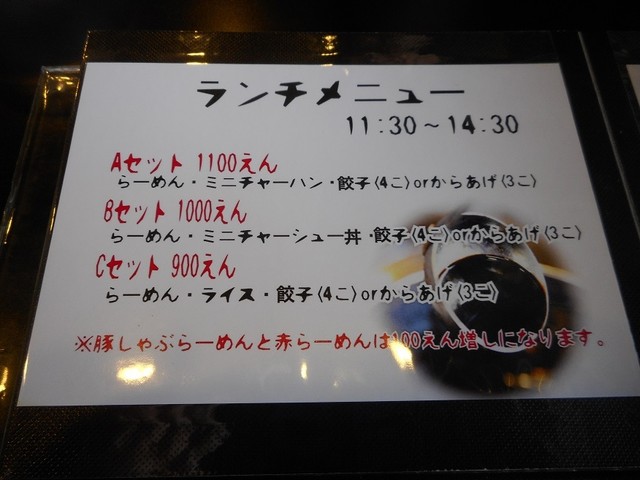 ランチメニュー
11:30～14:30
Aセット 1100えん
らーめん・ミニチャーハン・餃子(4こ)orからあげ(3こ)
Bセット 1000えん
らーめん・ミニチャーシュー丼・餃子(4こ)orからあげ(3こ)
Cセット 900えん
らーめん・ライス・餃子(4こ)orからあげ(3こ)
※豚しゃぶらーめんと赤らーめんは100えん増しになります。